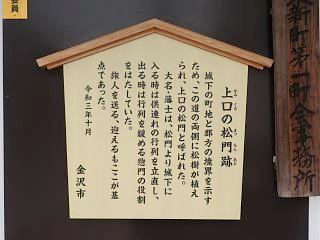 上口の松門跡
城下の町地と郡方の境界を示す
ため、この道の両側に松樹が植え
られ、上口の松門と呼ばれた。
大名・藩士は、松門より城下に
入る時は供連れの行列を立直し、
出る時は行列を緩める惣門の役割
をはたしていた。
旅人を送る、迎えるもここが基
点であった。
令和三年十月
金沢市